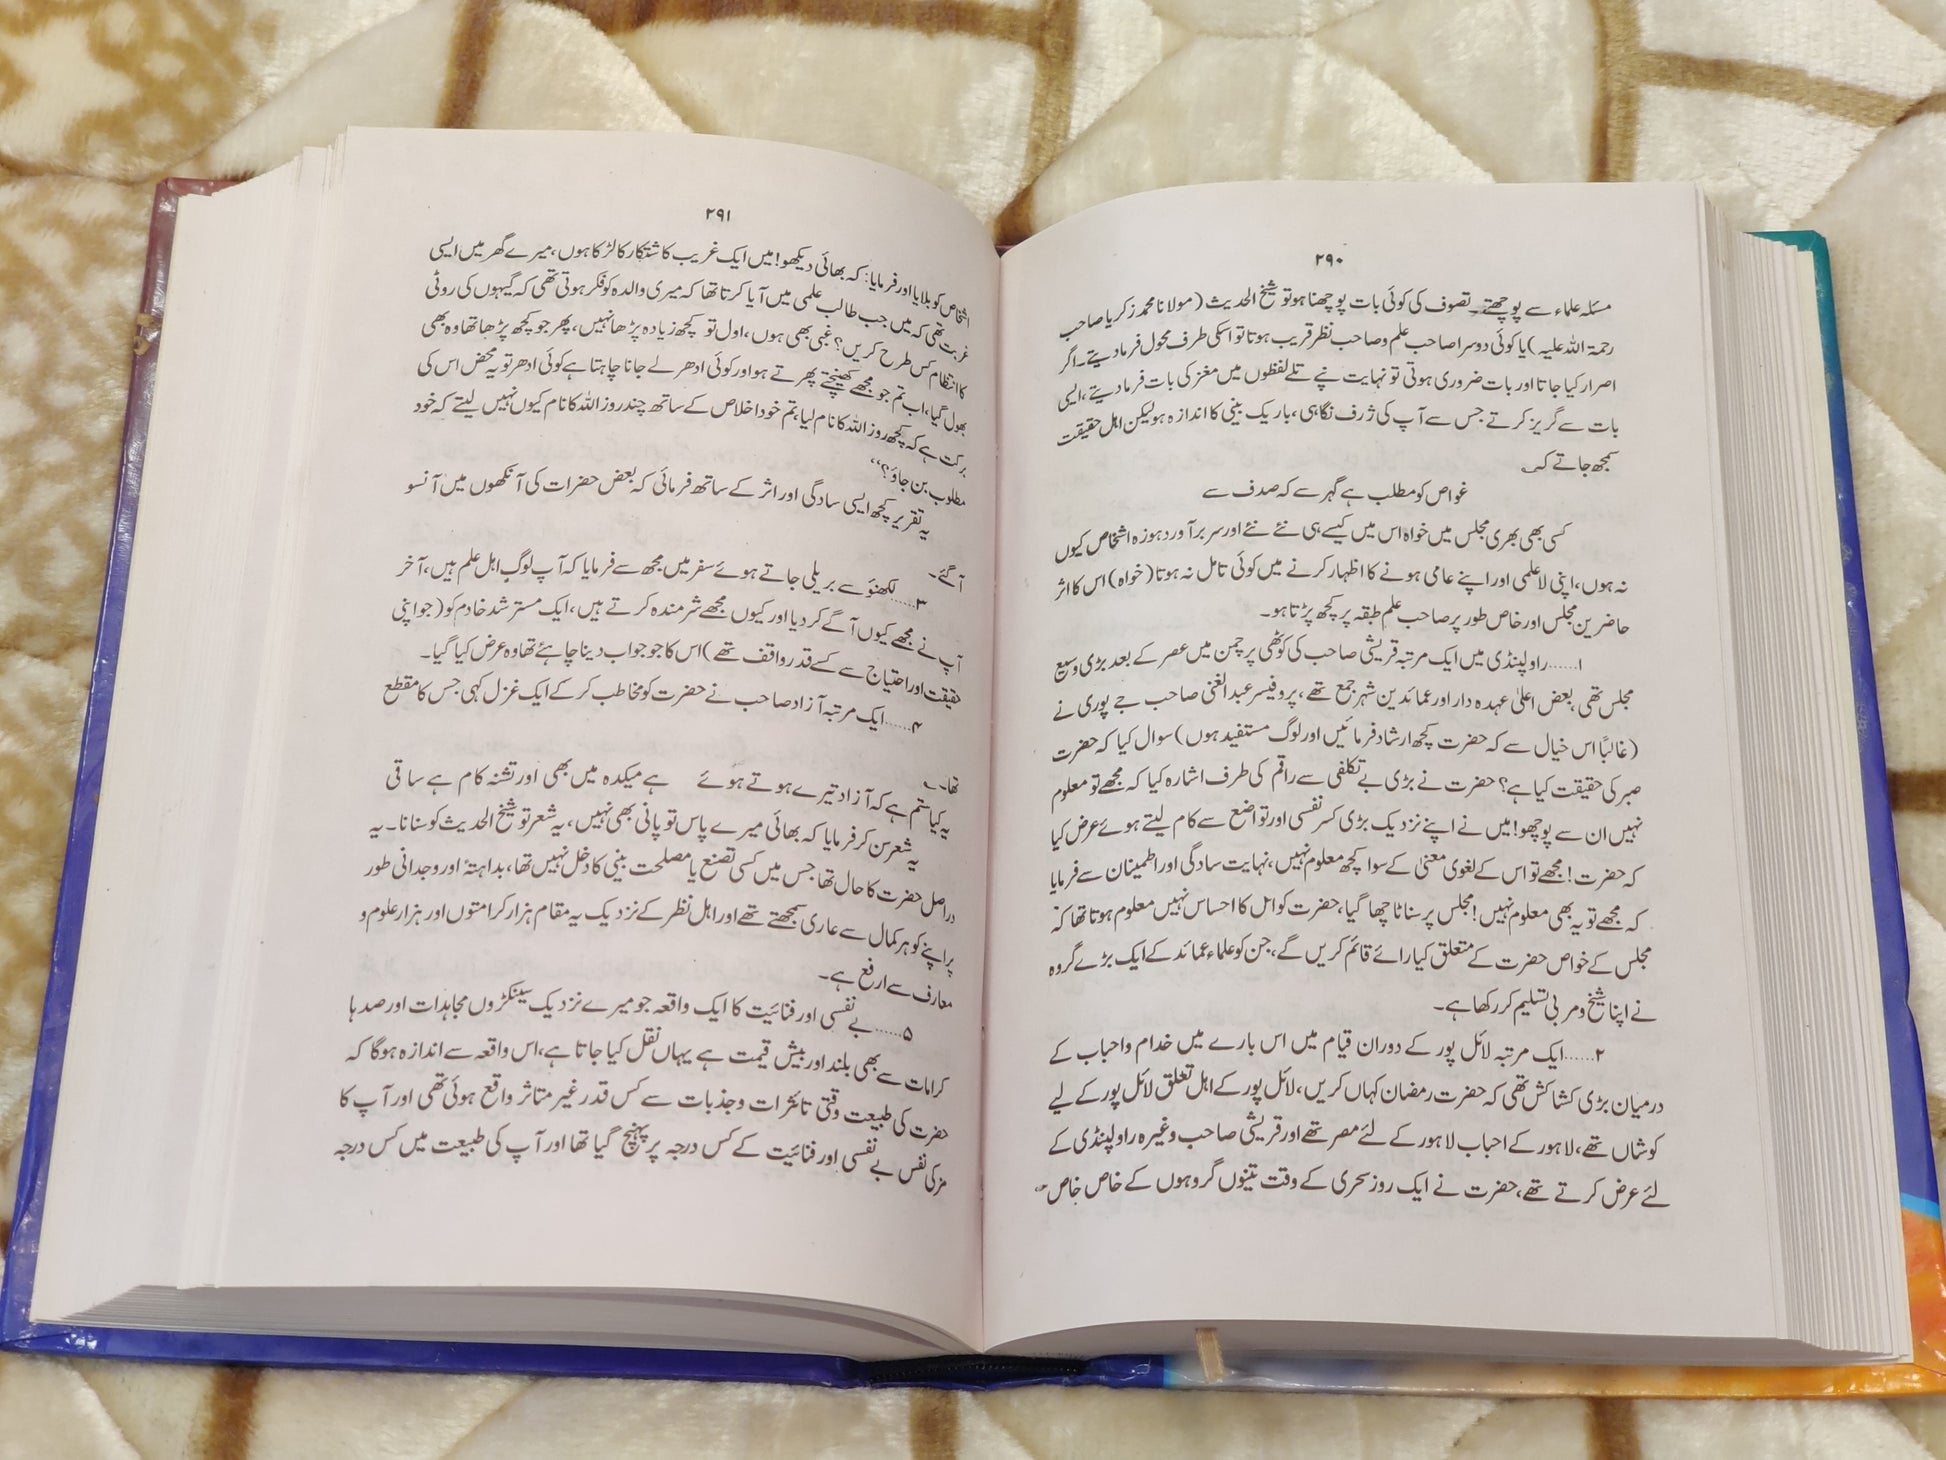 ۲۹۰
مسئلہ علماء سے پوچھتے۔ تصوف کی کوئی بات پوچھنا ہو تو شیخ الحدیث (مولانا محمد زکریا صاحب
رحمۃ اللہ علیہ) یا کوئی دوسرا صاحب علم و صاحب نظر قریب ہوتا تو اسکی طرف محول فرما دیتے۔ اگر
اصرار کیا جاتا اور بات ضروری ہوتی تو نہایت نپے تلے لفظوں میں مغز کی بات فرما دیتے، ایسی
بات سے گریز کرتے جس سے آپ کی ژرف نگاہی، باریک بینی کا اندازہ ہو لیکن اہل حقیقت
سمجھ جاتے کہ
غواص کو مطلب ہے گہر سے کہ صدف سے
کسی بھی بھری مجلس میں خواہ اس میں کیسے ہی نئے نئے اور سر بر آوردہ وزہ اشخاص کیوں
نہ ہوں، اپنی لاعلمی اور اپنے عامی ہونے کا اظہار کرنے میں کوئی تامل نہ ہوتا (خواہ) اس کا اثر
حاضرین مجلس اور خاص طور پر صاحب علم طبقہ پر کچھ پڑتا ہو۔
۱......راولپنڈی میں ایک مرتبہ قریشی صاحب کی کوٹھی پر چمن میں عصر کے بعد بڑی وسیع
مجلس تھی، بعض اعلیٰ عہدہ دار اور عمائدین شہر جمع تھے، پروفیسر عبدالغنی صاحب جے پوری نے
(غالباً اس خیال سے کہ حضرت کچھ ارشاد فرمائیں اور لوگ مستفید ہوں) سوال کیا کہ حضرت
صبر کی حقیقت کیا ہے؟ حضرت نے بڑی بے تکلفی سے راقم کی طرف اشارہ کیا کہ مجھے تو معلوم
نہیں ان سے پوچھو! میں نے اپنے نزدیک بڑی کسر نفسی اور تواضع سے کام لیتے ہوئے عرض کیا
کہ حضرت! مجھے تو اس کے لغوی معنیٰ کے سوا کچھ معلوم نہیں، نہایت سادگی اور اطمینان سے فرمایا
کہ مجھے تو یہ بھی معلوم نہیں! مجلس پر سناٹا چھا گیا، حضرت کو اس کا احساس نہیں معلوم ہوتا تھا کہ
مجلس کے خواص حضرت کے متعلق کیا رائے قائم کریں گے، جن کو علماء عمائد کے ایک بڑے گروہ
نے اپنا شیخ و مربی تسلیم کر رکھا ہے۔
۲......ایک مرتبہ لائل پور کے دوران قیام میں اس بارے میں خدام و احباب کے
درمیان بڑی کشاکش تھی کہ حضرت رمضان کہاں کریں، لائل پور کے اہل تعلق لائل پور کے لیے
کوشاں تھے، لاہور کے احباب لاہور کے لئے مصر تھے اور قریشی صاحب وغیرہ راولپنڈی کے
لئے عرض کرتے تھے، حضرت نے ایک روز سحری کے وقت تینوں گروہوں کے خاص خاص
۲۹۱
اشخاص کو بلایا اور فرمایا: کہ بھائی دیکھو! میں ایک غریب کاشتکار کا لڑکا ہوں، میرے گھر میں ایسی
غربت تھی کہ میں جب طالب علمی میں آیا کرتا تھا کہ میری والدہ کو فکر ہوتی تھی کہ گیہوں کی روٹی
کا انتظام کس طرح کریں؟ غبی بھی ہوں، اول تو کچھ زیادہ پڑھا نہیں، پھر جو کچھ پڑھا تھا وہ بھی
بھول گیا، اب تم جو مجھے کھینچتے پھرتے ہو اور کوئی ادھر لے جانا چاہتا ہے کوئی ادھر تو یہ محض اس کی
برکت ہے کہ کچھ روز اللہ کا نام لیا، تم خود اخلاص کے ساتھ چند روز اللہ کا نام کیوں نہیں لیتے کہ خود
مطلوب بن جاؤ؟‘‘
یہ تقریر کچھ ایسی سادگی اور اثر کے ساتھ فرمائی کہ بعض حضرات کی آنکھوں میں آنسو
آ گئے۔
۳......لکھنؤ سے بریلی جاتے ہوئے سفر میں مجھ سے فرمایا کہ آپ لوگ اہل علم ہیں، آخر
آپ نے مجھے کیوں آگے کر دیا اور کیوں مجھے شرمندہ کرتے ہیں، ایک مسترشد خادم کو (جو اپنی
حقیقت اور احتیاج سے کسے قدر واقف تھے) اس کا جو جواب دینا چاہئے تھا وہ عرض کیا گیا۔
۴......ایک مرتبہ آزاد صاحب نے حضرت کو مخاطب کر کے ایک غزل کہی جس کا مقطع
تھا۔
یہ کیا ستم ہے کہ آزاد تیرے ہوتے ہوئے ہے میکدہ میں بھی اور تشنہ کام ہے ساقی
یہ شعر سن کر فرمایا کہ بھائی میرے پاس تو پانی بھی نہیں، یہ شعر تو شیخ الحدیث کو سنانا۔ یہ
دراصل حضرت کا حال تھا جس میں کسی تصنع یا مصلحت بینی کا دخل نہیں تھا، بداہتۂ اور وجدانی طور
پر اپنے کو ہر کمال سے عاری سمجھتے تھے اور اہل نظر کے نزدیک یہ مقام ہزار کرامتوں اور ہزار علوم و
معارف سے ارفع ہے۔
۵......بے نفسی اور فنائیت کا ایک واقعہ جو میرے نزدیک سینکڑوں مجاہدات اور صدہا
کرامات سے بھی بلند اور بیش قیمت ہے یہاں نقل کیا جاتا ہے، اس واقعہ سے اندازہ ہوگا کہ
حضرت کی طبیعت وقتی تاثرات و جذبات سے کس قدر غیر متاثر واقع ہوئی تھی اور آپ کا
مزکی نفس بے نفسی اور فنائیت کے کس درجہ پر پہنچ گیا تھا اور آپ کی طبیعت میں کس درجہ